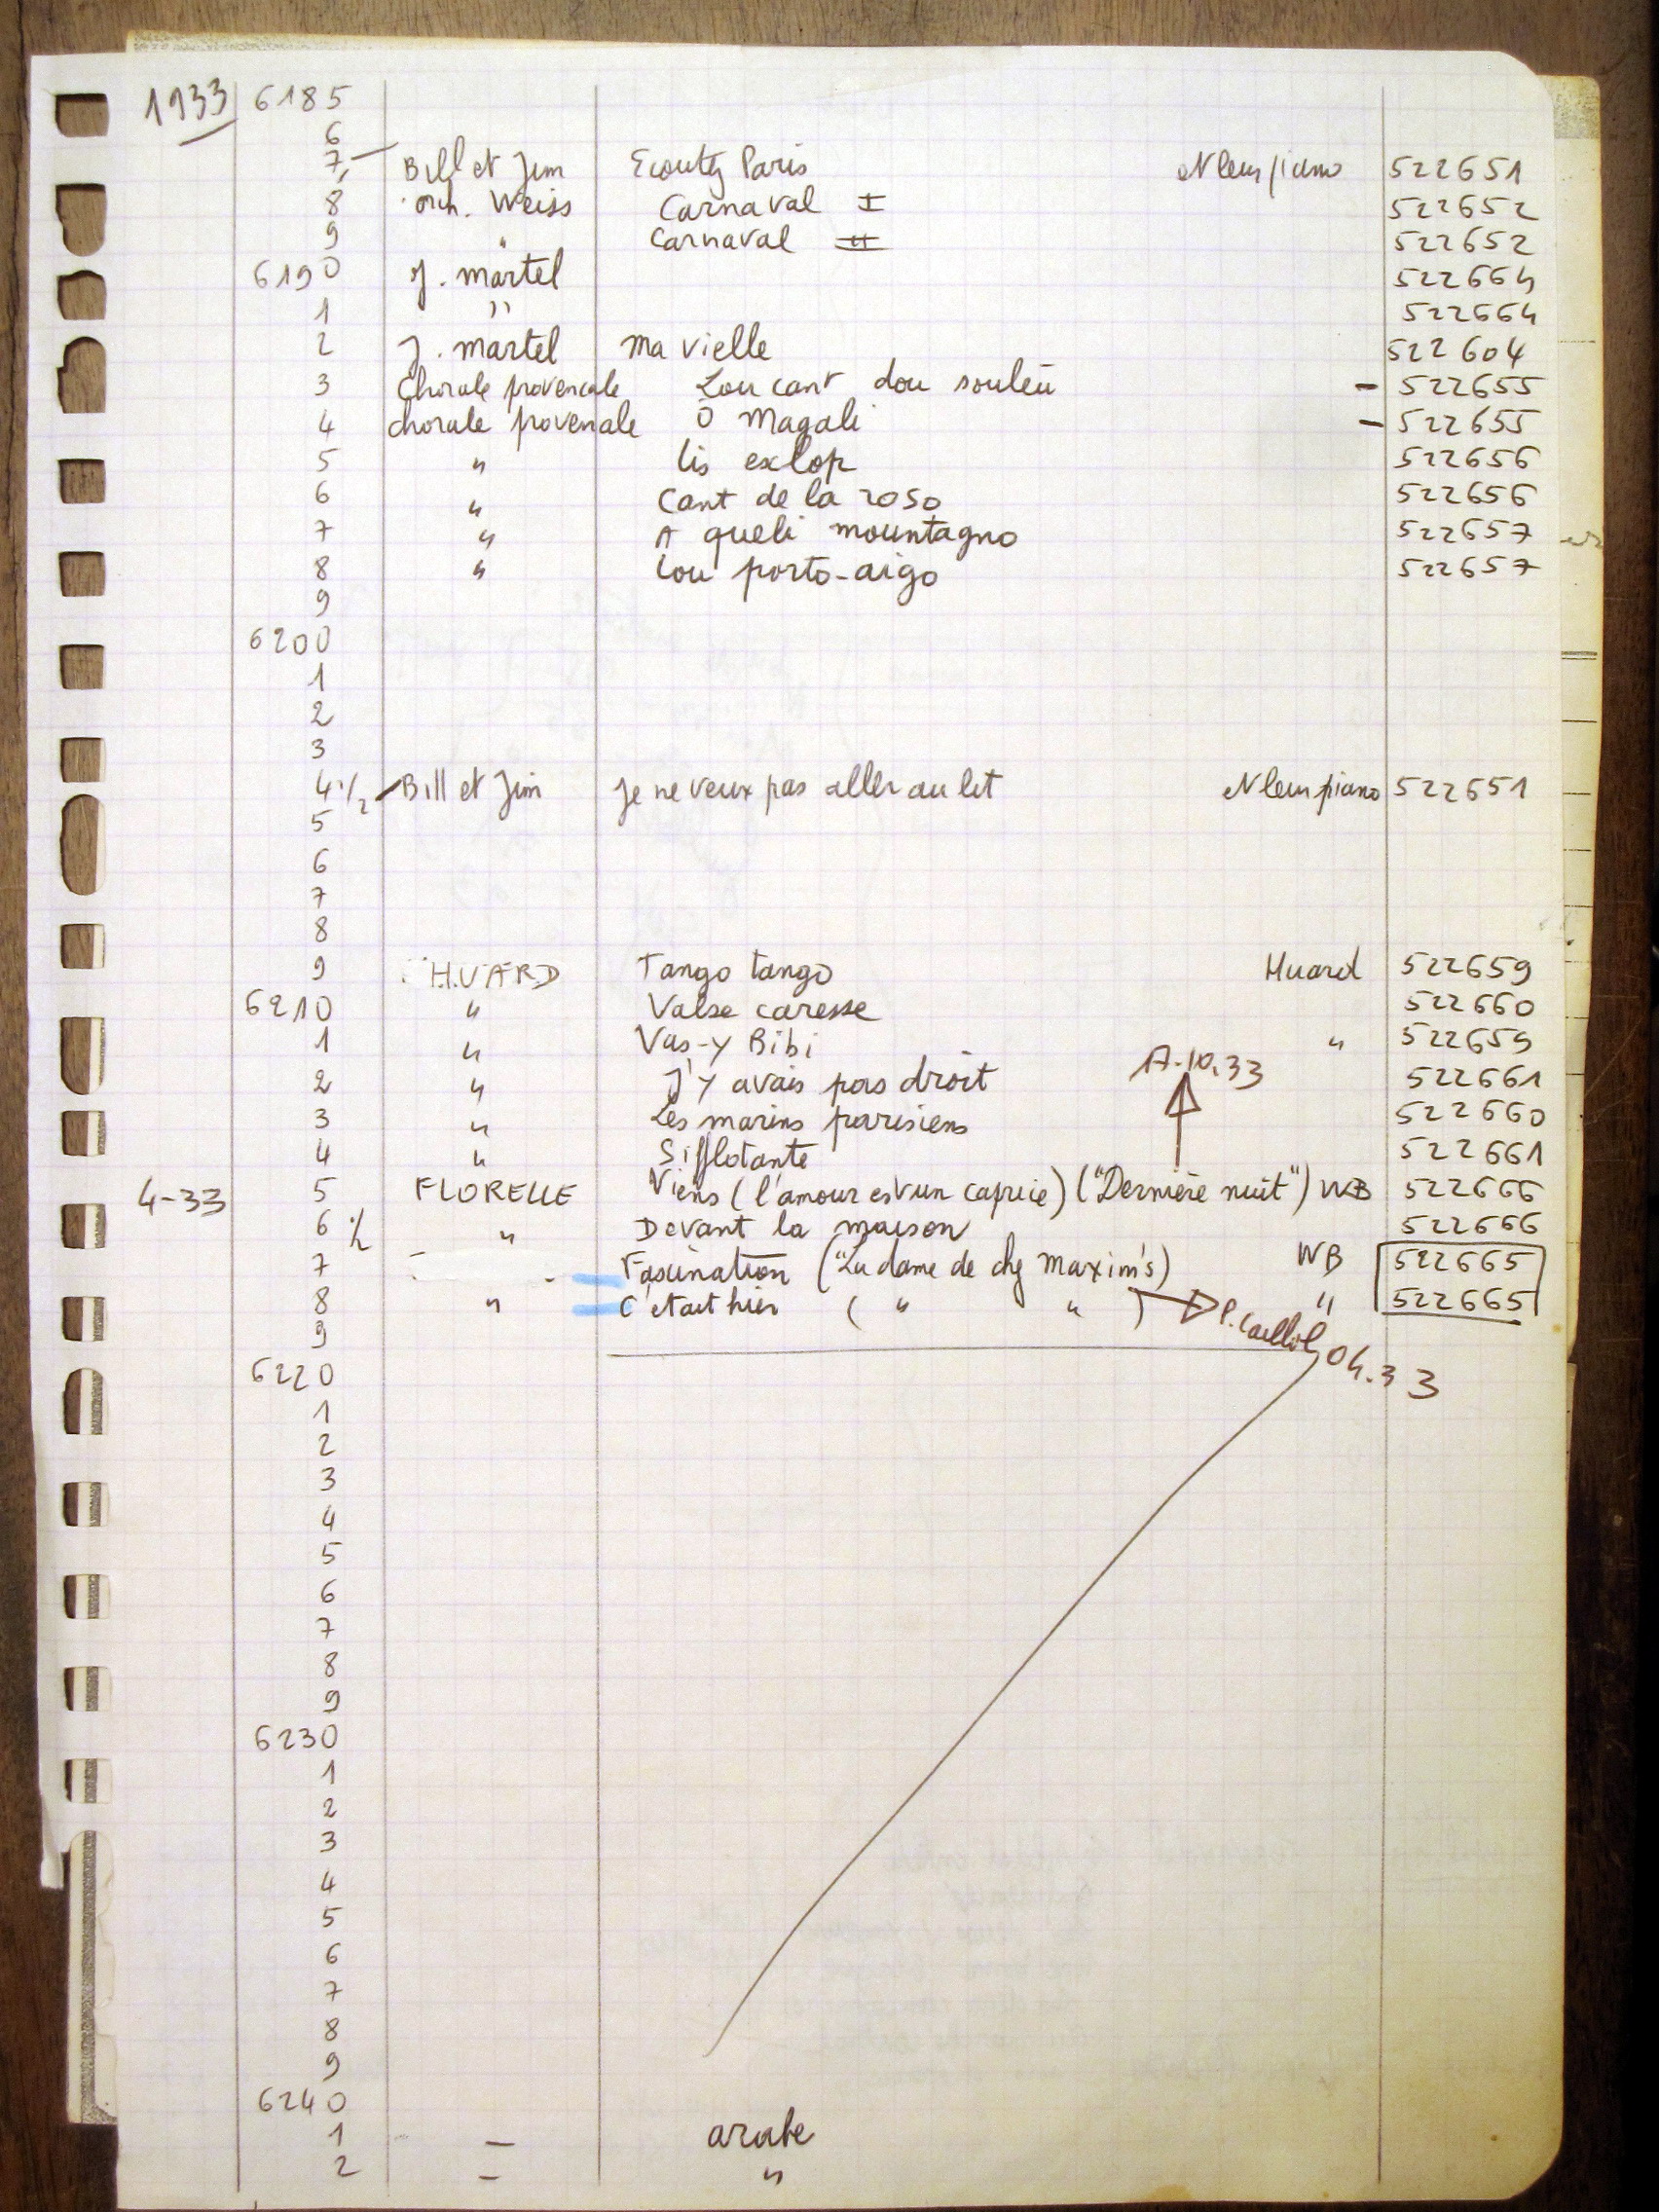 1933 6185
6
7 Bill et Jim Ecoutez Paris et leur piano 522651
8 orch. Weiss Carnaval I 522652
9 " Carnaval II 522652
6190 J. Martel 522664
1 " 522664
2 J. Martel Ma vielle 522604
3 Chorale provencale Lou cant dou souleu - 522655
4 chorale provencale O Magali - 522655
5 " Lis esclop 522656
6 " Cant de la roso 522656
7 " A queli mountagno 522657
8 " Lou porto-aigo 522657
9
6200
1
2
3
4 1/2 Bill et Jim Je ne veux pas aller au lit et leur piano 522651
5
6
7
8
9 HUARD Tango tango Huard 522659
6210 " Valse caresse 522660
1 " Vas-y Bibi " 522659
2 " J'y avais pas droit A.10.33 522661
3 " Les marins parisiens 522660
4 " Sifflotante 522661
4-33 5 FLORELLE Viens (l'amour est un caprice) ("Dernière nuit") WB 522666
6 1/2 " Devant la maison 522666
7 Fascination ("La dame de chez Maxim's) WB 522665
8 " C'etait hier ( " " ) " 522665
9 P. Caillol 04.33
6220
1
2
3
4
5
6
7
8
9
6230
1
2
3
4
5
6
7
8
9
6240
1 — arabe
2 — "